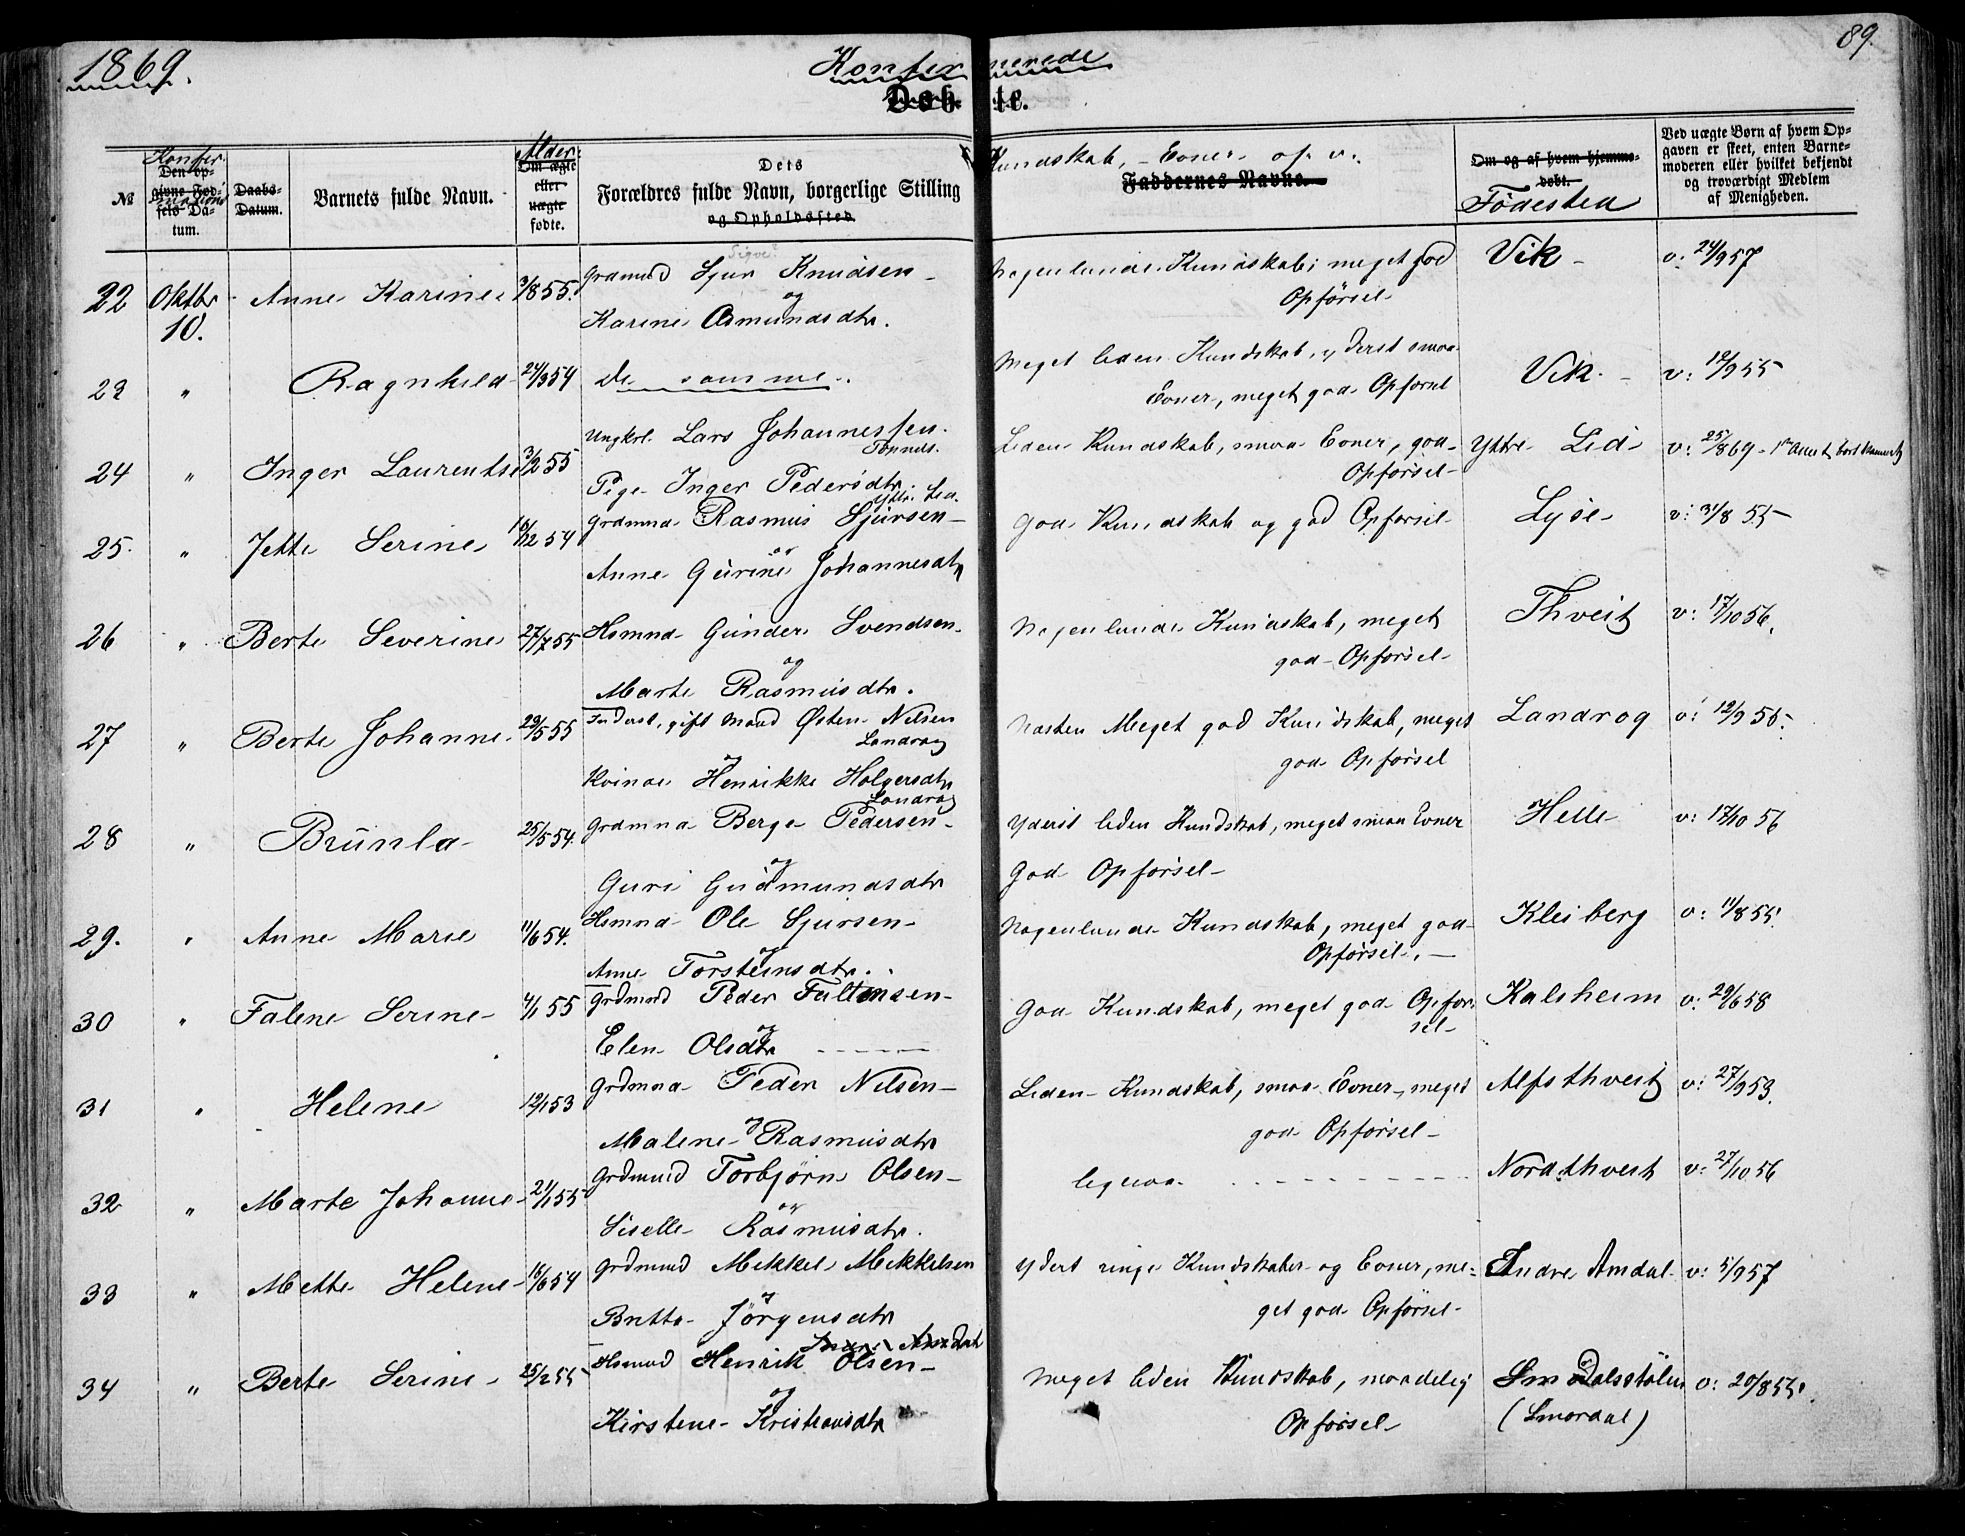 1869.
Konfirmerede
89.
Døbte.
№
Konfirmations
Den opgivne Fødsels Datum.
Daabs-Datum.
Barnets fulde Navn.
Alder
Om ægte eller uægte fødte.
Dets
Forældres fulde Navn, borgerlige Stilling
og Opholdssted.
Kundskab, Evner o. v.
Faddernes Navne.
Om og af hvem hjemmedøbt.
Fødested
Ved uægte Børn af hvem Opgaven er skeet, enten Barnemoderen eller hvilket bekjendt og troværdigt Medlem af Menigheden.
22 Oktbr 10. Anne Karine 3/8 55. Grdmnd Sjur Knudsen
Sigve?
og
Karine Osmundsdtr.
Nogenlunde Kundskab; meget god
Opførsel
Vik v: 24/9 57
23 " Ragnhild 24/3 54 De samme.
Meget liden Kundskab, yderst smaa
Evner, meget god Opførsel
Vik v: 12/9 55
24 " Inger Laurentse 3/2 55 Ungkrl. Lars Johannessen
Pige Inger Pedersdtr.
Yttre Lid.
Liden Kundskab, smaa Evner, god
Opførsel
Yttre Lid v: 25/8 69
25. " Jette Serine 16/12 54 Grdmnd Rasmus Sjursen
og
Anne Gurine Johannesdtr
God Kundskab og god Opførsel
Lyse v: 31/8 55
26 " Berte Severine 27/7 55 Hsmnd Gunder Svendsen
og
Marte Rasmusdtr.
Nogenlunde Kundskab, meget
god Opførsel
Thveit v: 17/10 56.
27 " Berte Johanne 29/5 55 Inderst, gift Mand Østen Nilsen
Landrog
og
Kvinde Henrikke Holgersdtr
Landrog
Næsten Meget god Kundskab, meget
god Opførsel
Landrog v: 12/9 55.
28 " Brünla 25/5 54. Grdmnd Berge Pedersen
og
Guri Gudmundsdtr
Yderst liden Kundskab, meget smaa Evner
God Opførsel
Helle v: 17/10 56
29. " Anne Marie 11/6 54. Hsmnd Ole Sjursen
og
Anne Torsteinsdtr.
Nogenlunde Kundskab, meget god
Opførsel.
Kleiberg v: 11/8 55.
30 " Falene Serine 4/1 55 Grdmnd Peder Faltensen
og
Elen Olsdtr
God Kundskab, meget god Opførsel
Kalsheim v: 29/6 58
31 " Helene 12/1 53 Grdmnd Peder Nilsen
og
Malene Rasmusdtr
Liden Kundskab, smaa Evner, meget
god Opførsel
Alfsthveit v: 27/9 53.
32 " Marte Johanne 21/1 55 Grdmnd Torbjørn Olsen
og
Siselle Rasmusdtr.
ligesaa
Nordthveit v: 27/10 56
33 " Mette Helene 16/6 54 Grdmnd Mikkel Mikkelsen
og
Britta Jørgensdtr
Yderst ringe Kundskaber og Evner, meget
god Opførsel
Indre Amdal v: 5/9 57
34 " Berte Serine 25/2 55 Hsmnd Henrik Olsen
og
Kirstene Kristiansdtr
Meget liden Kundskab, maadelig
Opførsel
Smødalsstølen v: 20/8 55.
(Smørdal)